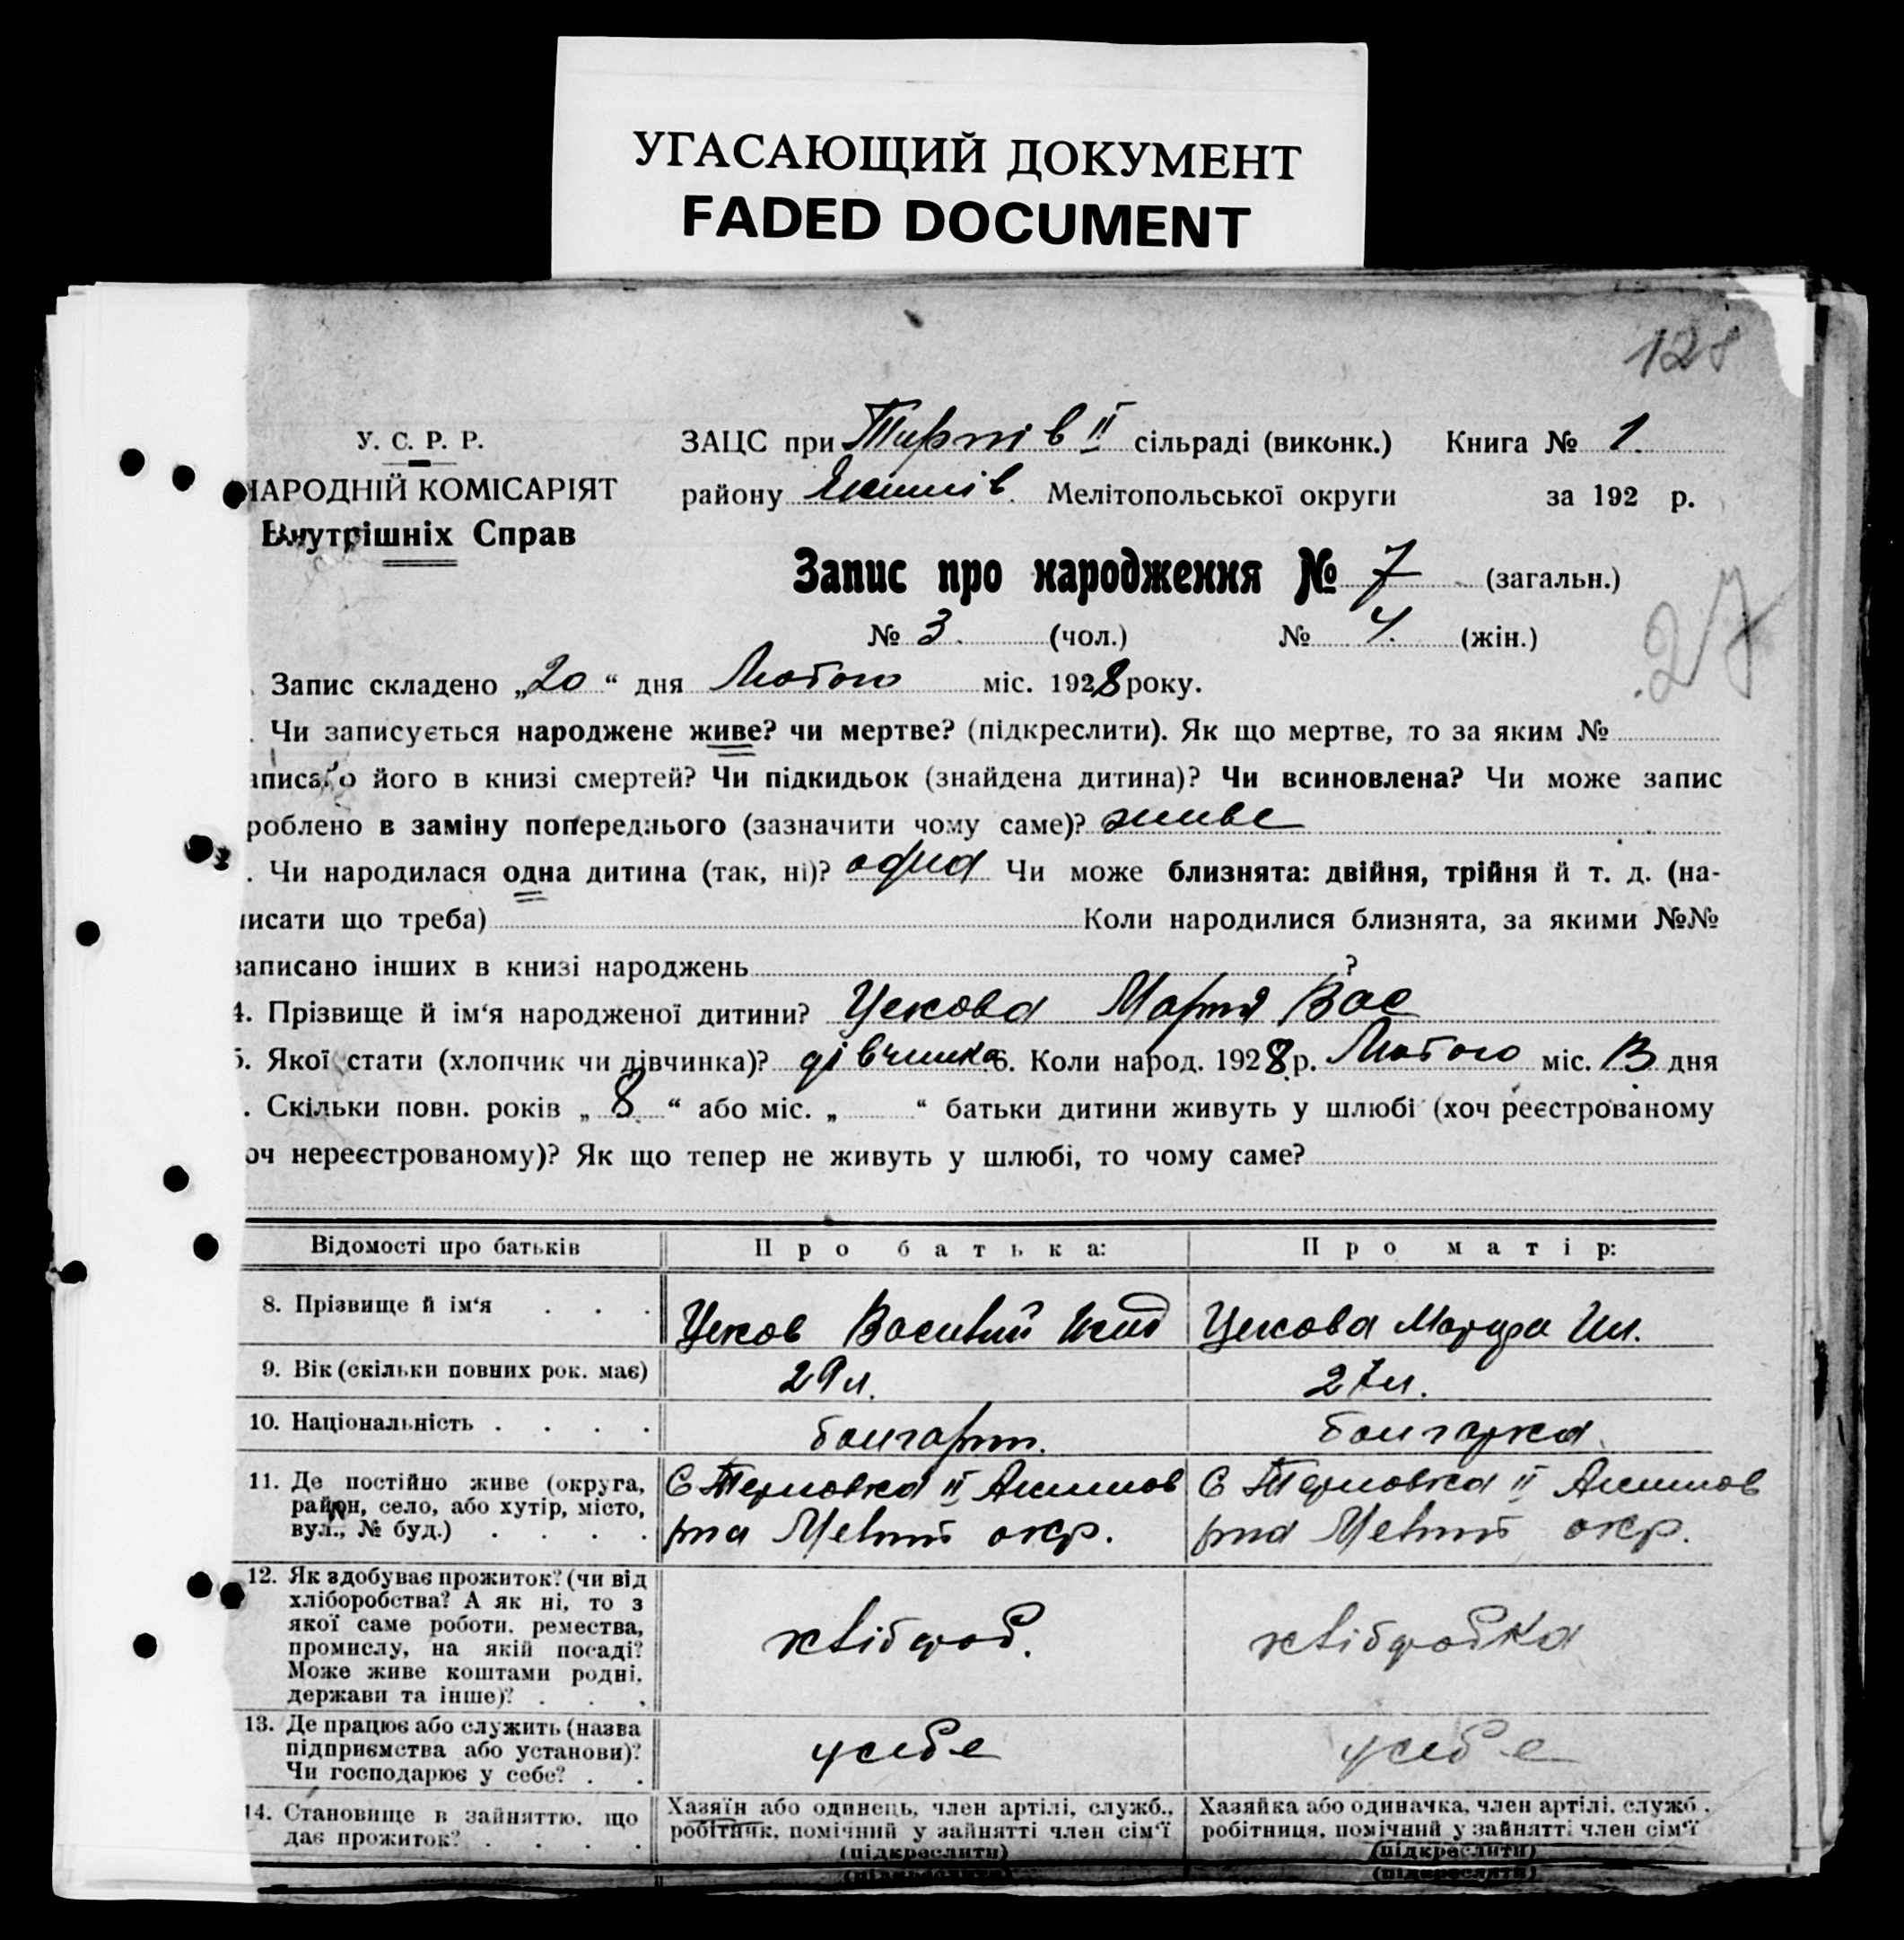 УГАСАЮЩИЙ ДОКУМЕНТ
FADED DOCUMENT
128
У. С. Р. Р.
НАРОДНІЙ КОМІСАРІЯТ
Внутрішніх Справ
ЗАЦС при Тирнів II сільраді (виконк.) Книга № 1.
району Якимів. Мелітопольської округи за 192 р.
Запис про народження № 7 (загальн.)
№ 3. (чол.) № 4. (жін.)
27
Запис складено „20“ дня Лютого міс. 1928 року.
Чи записується народжене живе? чи мертве? (підкреслити). Як що мертве, то за яким №
аписано його в книзі смертей? Чи підкидьок (знайдена дитина)? Чи всиновлена? Чи може запис
роблено в заміну попереднього (зазначити чому саме)? живе
3. Чи народилася одна дитина (так, ні)? одна Чи може близнята: двійня, трійня й т. д. (на-
писати що треба) Коли народилися близнята, за якими №№
записано інших в книзі народжень ?
4. Прізвище й ім‘я народженої дитини? Цекова Мария Вас
5. Якої стати (хлопчик чи дівчинка)? дівчинка 6. Коли народ. 1928 р. Лютого міс. 13 дня
. Скільки повн. років „8“ або міс. „ “ батьки дитини живуть у шлюбі (хоч реєстрованому
оч нереєстрованому)? Як що тепер не живуть у шлюбі, то чому саме?
Відомості про батьків Про батька: Про матір:
8. Прізвище й ім‘я . . . Цеков Василий Цекова Марфа Ил.
9. Вік (скільки повних рок. має) 29 л. 27 л.
10. Національність . . . . болгарин. болгарка
11. Де постійно живе (округа,
район, село, або хутір, місто,
вул., № буд.) . . . .
С Терновка II Акимов
рна Меліт окр.
С Терновка II Акимов
рна Меліт окр.
12. Як здобуває прожиток? (чи від
хліборобства? А як ні, то з
якої саме роботи, ремества,
промислу, на якій посаді?
Може живе коштами родні,
держави та інше)? . . .
хлібороб.
хліборобка
13. Де працює або служить (назва
підприємства або установи)?
Чи господарює у себе? . .
у себе
у себе
14. Становище в зайняттю, що
дає прожиток? . . . .
Хазяїн або одинець, член артілі, служб.,
робітник, помічний у зайнятті член сім‘ї
(підкреслити)
Хазяйка або одиначка, член артілі, служб.,
робітниця, помічний у зайнятті член сім‘ї
(підкреслити)
(підкреслити)